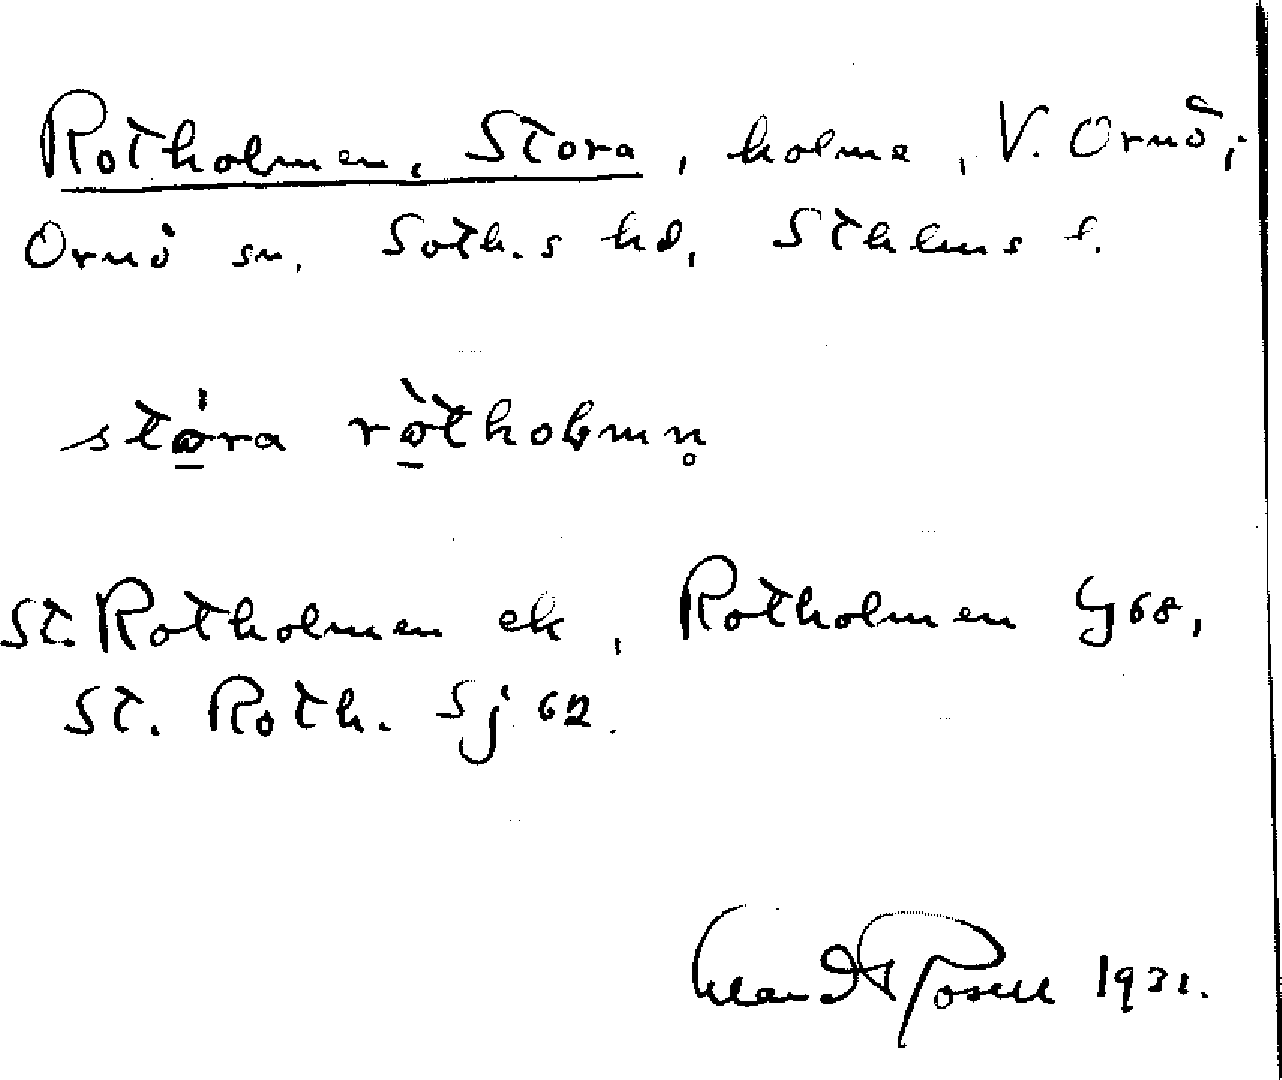 Rotholmen, Stora, holme, V. Ornö,
Ornö sn, Soth.s hd, Sthlms l.
stǫ́ra rǫ̀tholmn̥
St. Rotholmen ek, Rotholmen Gj 68,
St. Roth. Sj 62.
1931.